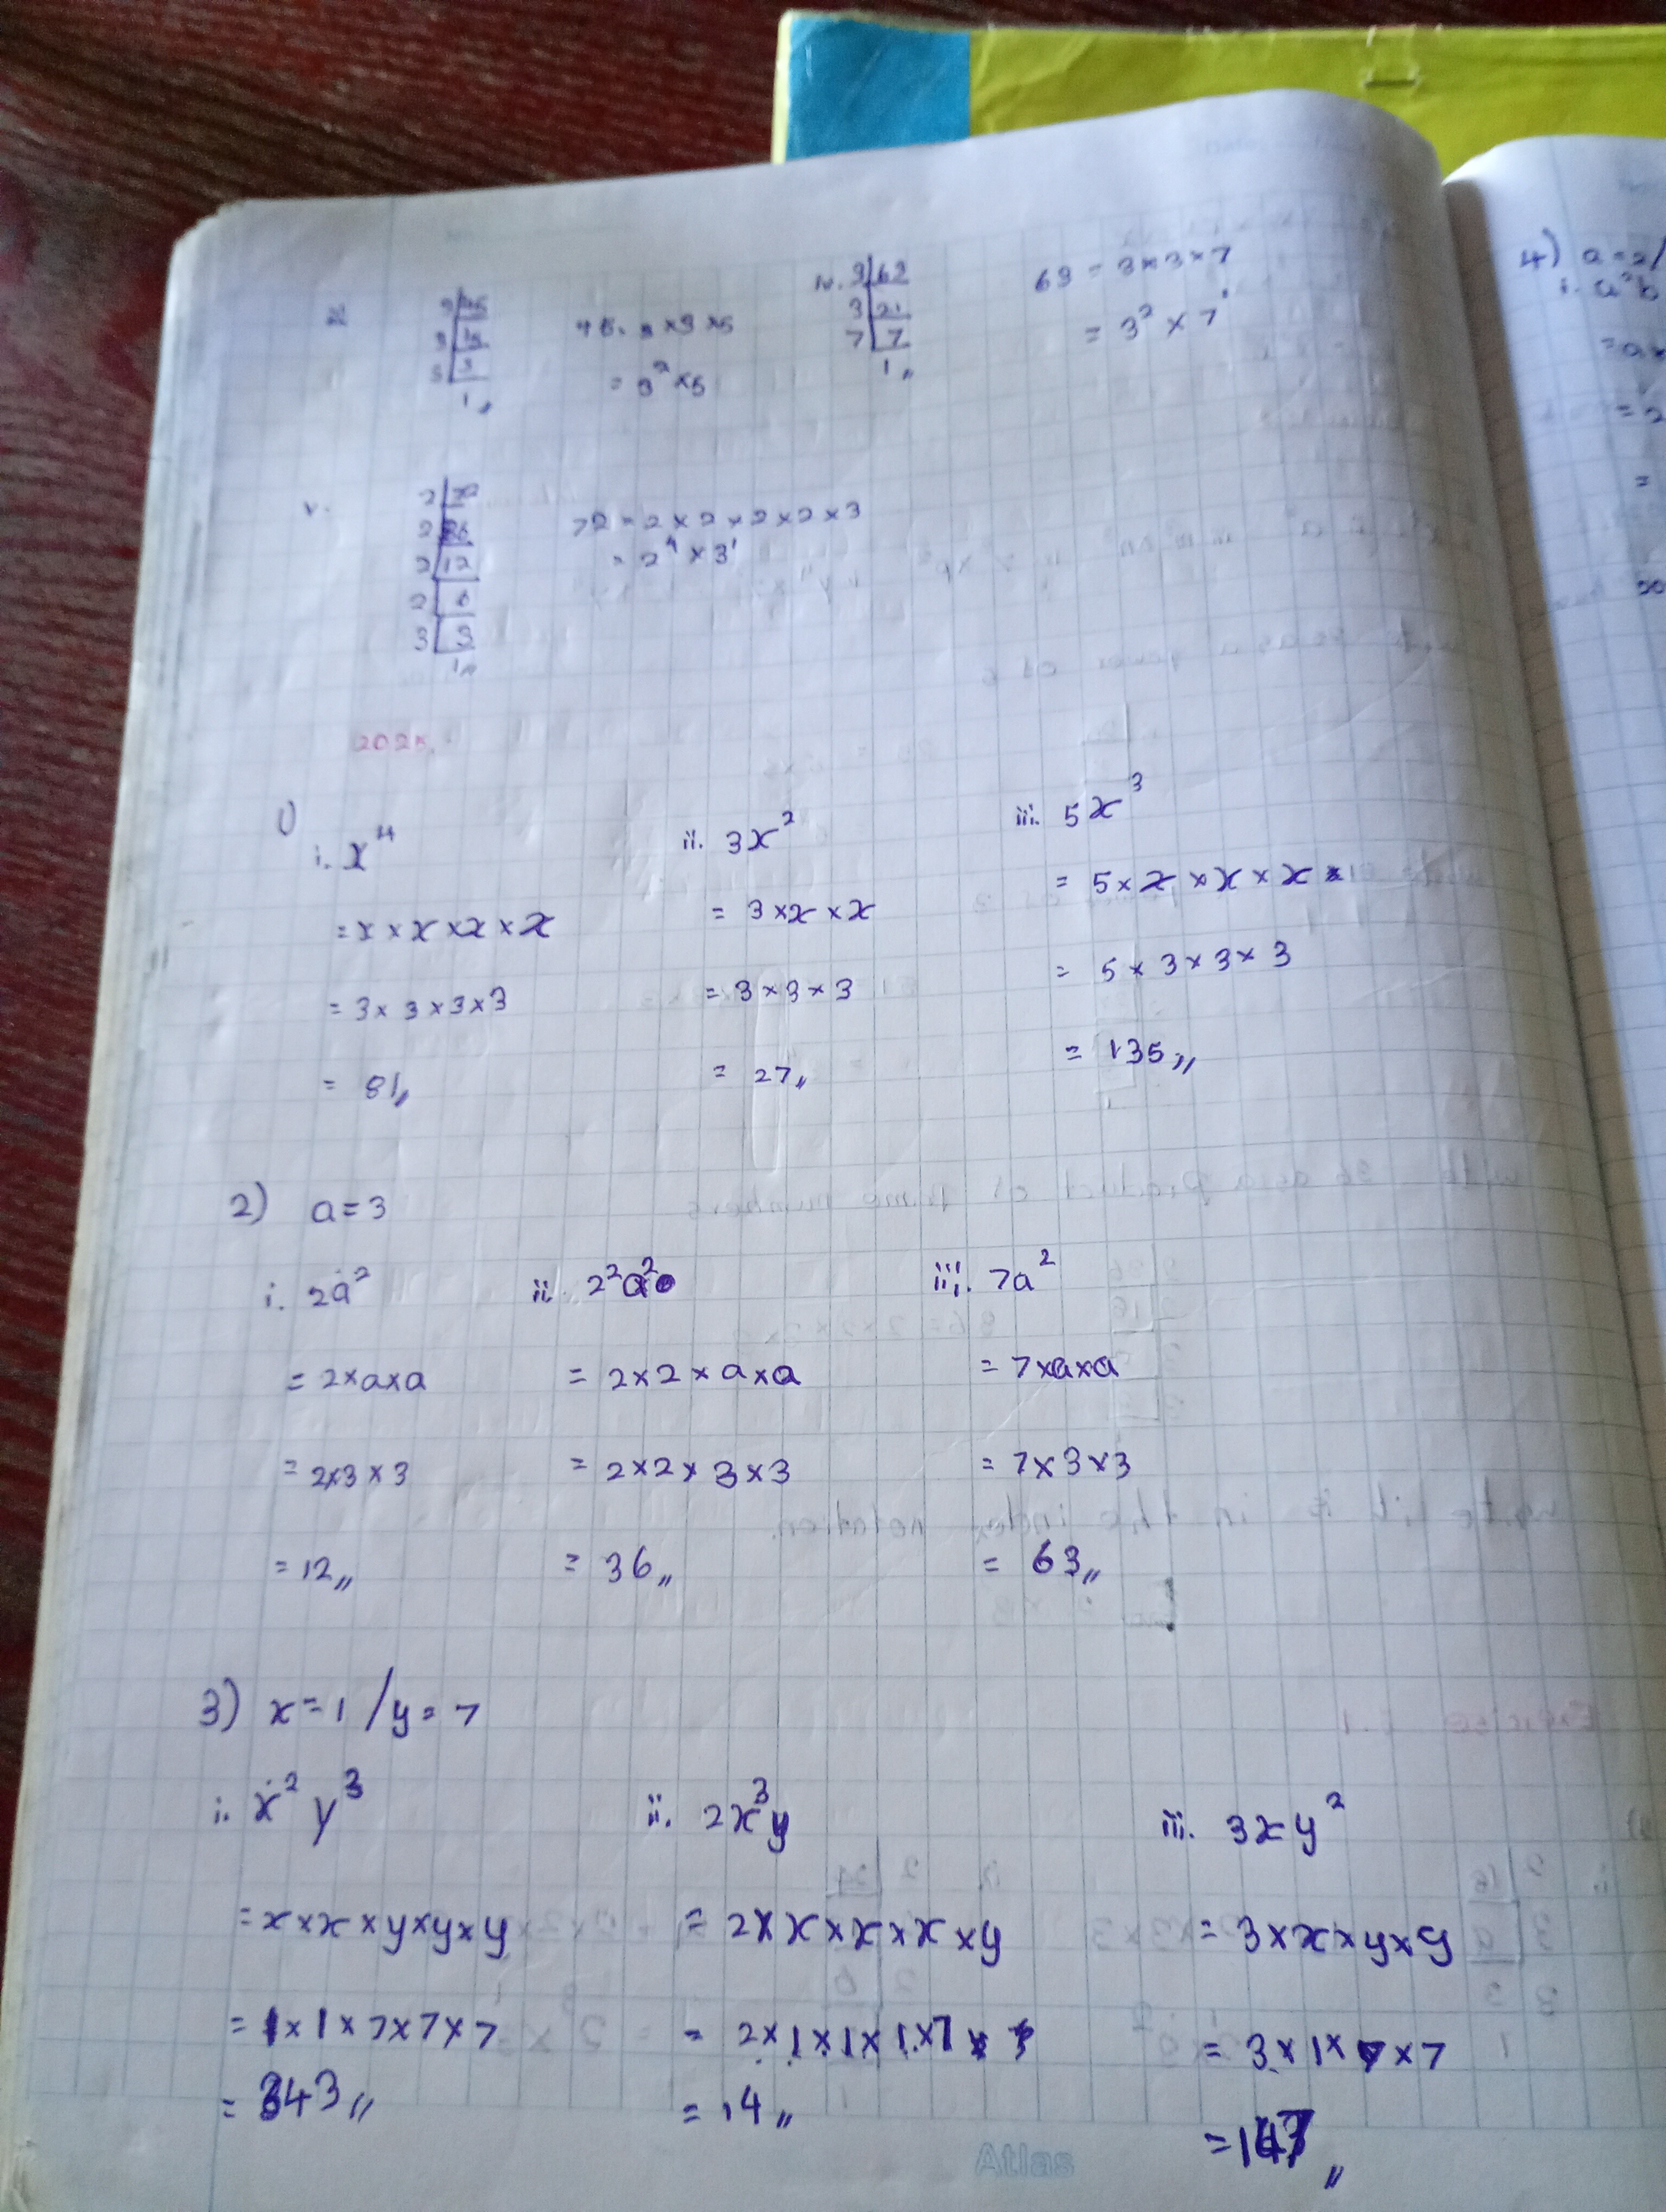 3 | 45
3 | 15
5 | 5
1 "
45 = 3 × 3 × 5
= 3² × 5
iv. 3 | 63
3 | 21
7 | 7
1 "
63 = 3 × 3 × 7
= 3² × 7¹
v. 2 | 72
2 | 36
2 | 12
2 | 6
3 | 3
1 "
72 = 2 × 2 × 2 × 2 × 3
= 2⁴ × 3¹
2025.
1)
i. x⁴
= x × x × x × x
= 3 × 3 × 3 × 3
= 81 "
ii. 3x²
= 3 × x × x
= 3 × 3 × 3
= 27 "
iii. 5x³
= 5 × x × x × x
= 5 × 3 × 3 × 3
= 135 "
2) a = 3
i. 2a²
= 2 × a × a
= 2 × 3 × 3
= 12 "
ii. 2²a²
= 2 × 2 × a × a
= 2 × 2 × 3 × 3
= 36 "
iii. 7a²
= 7 × a × a
= 7 × 3 × 3
= 63 "
3) x = 1 / y = 7
i. x² y³
= x × x × y × y × y
= 1 × 1 × 7 × 7 × 7
= 343 "
ii. 2x³y
= 2 × x × x × x × y
= 2 × 1 × 1 × 1 × 7
= 14 "
iii. 3xy²
= 3 × x × y × y
= 3 × 1 × 7 × 7
= 147 "
Atlas
4) a = 2/
i. a²b
= a ×
= 2
=